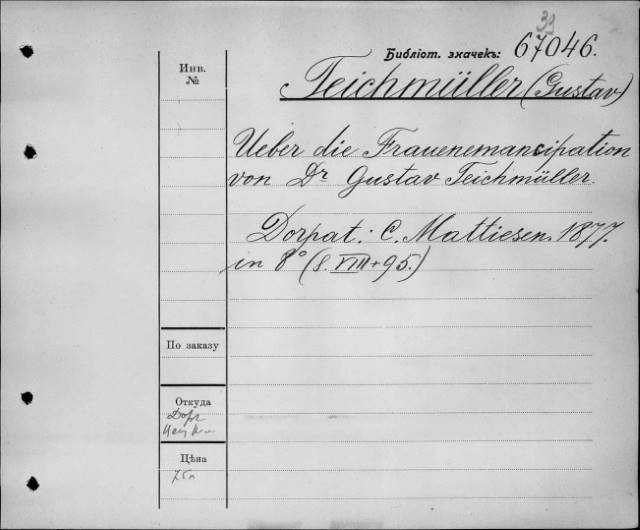 33
Библіот. значекъ: 67046.
Инв.
№
Teichmüller (Gustav)
Ueber die Frauenemancipation
von Dr Gustav Teichmüller.
Dorpat: C. Mattiesen. 1877.
in 8° (S. VIII + 95.)
По заказу
Откуда
Цѣна